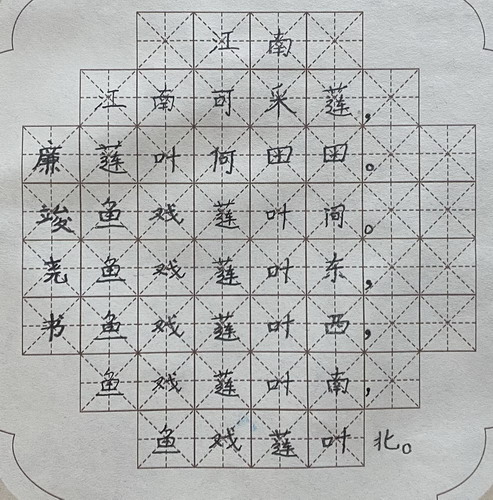 江南
江南可采莲，
莲叶何田田。
鱼戏莲叶间。
鱼戏莲叶东，
鱼戏莲叶西，
鱼戏莲叶南，
鱼戏莲叶北。
廉竣尧书